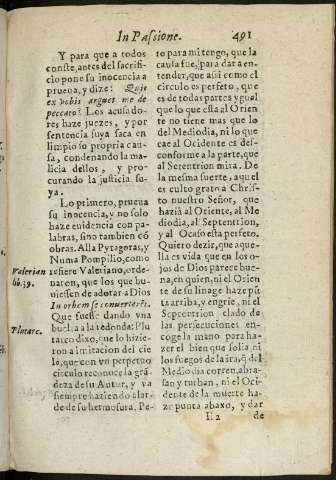 In Passione. 491
Y para que a todos
conste, antes del sacrifi-
cio pone su inocencia a
prueua, y dize: Quis
ex vobis arguet me de
peccato? Los acusado-
res haze juezes, y por
sentencia suya saca en
limpio su propria cau-
sa, condenando la ma-
licia dellos, y pro-
curando la justicia su-
ya.
Lo primero, prueua
su inocencia, y no solo
haze euidencia con pa-
labras, sino tambien cõ
obras. Alla Pytagoras, y
Numa Pompilio, como
refiere Valeriano, orde-
naron, que los que hu-
uiessen de adorar a Dios
In orbem se conuerterēt.
Que fuesse dando vna
buelta a la redonda: Plu
tarco dixo, que lo hizie-
ron a imitacion del cie
lo, que con vn perpetuo
circulo reconoce la grã
deza de su Autor, y va
siempre haziendo alar-
de de su hermosura. Pe-
Valerian
lib. 39.
Plutarc.
ro para mi tengo, que la
causa fue, para dar a en-
tender, que assi como el
circulo es perfeto, que
es de todas partes ygual
que lo que esta al Orien
te no tiene mas que lo
del Mediodia, ni lo que
cae al Ocidente es des-
conforme a la parte, que
al Setentrion mira. De
la mesma suerte, aquel
es culto grato a Chris-
to nuestro Señor, que
haziâ al Oriente, al Me
diodia, al Septentrion,
y al Ocaso esta perfeto.
Quiero dezir, que aque-
lla es vida que en los o-
jos de Dios parece bue-
na, en quien, ni el Orien
te de su linage haze pũ
ta arriba, y engrie, ni el
Septentrion elado de
las persecuciones en-
coge la mano para ha-
zer el bien que solia, ni
los fuegos de la ira, q̃ del
Mediodia corren, abra-
san y turban, ni el Oci-
dente de la muerte ha-
ze punta abaxo, y dar
Ii 2 de